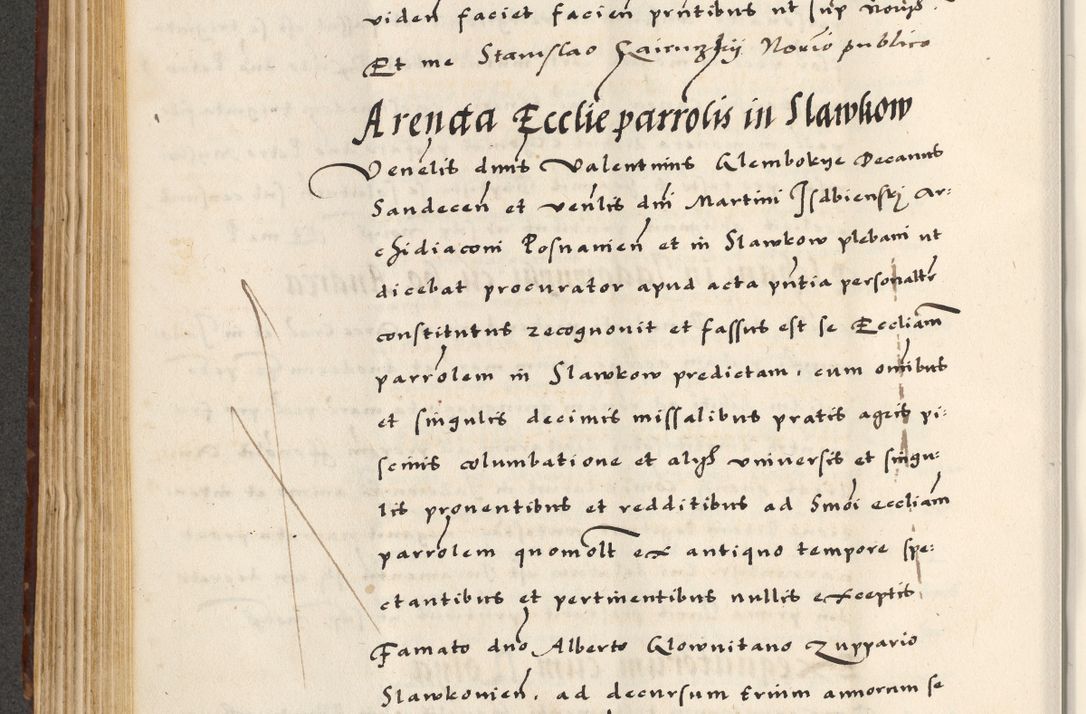 viden faciet facien prntibus ut sup Novijs.
Et me Stanislao Novio publico
Arenda Ecclie parrolis in Slawkow
Venelis dnus Valentinus Glembokye Decanus
Sandecen et venlis dni Martini Isdbienskj Ar:
chidiaconi Posnanien et in Slawkow plebani ut
dicebat procurator apud acta pntia personaltr
constitutus recognovit et fassus est se Eccliam
parrolem in Slawkow predictam, cum omibus
et singulis decimis missalibus pratis agris pi:
scinis columbatione et alijs universis et singu:
lis proventibus et redditibus ad Smoi eccliam
parrolem quomolt ex antiquo tempore spe:
ctantibus et pertinentibus nullis exceptis,
Famato dno Alberto Glownitano Zuppario
Slawkovien, ad decursum trium annorum se